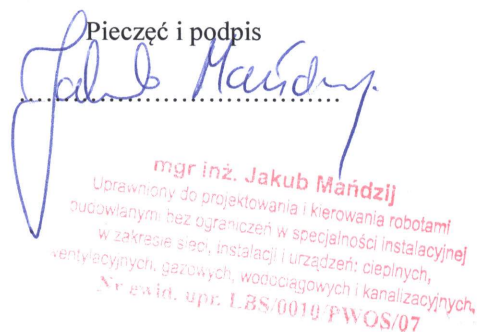 Pieczęć i podpis
Jakub Mańdzij
mgr inż. Jakub Mańdzij
Uprawniony do projektowania i kierowania robotami
budowlanymi bez ograniczeń w specjalności instalacyjnej
w zakresie sieci, instalacji i urządzeń: cieplnych,
wentylacyjnych, gazowych, wodociągowych i kanalizacyjnych,
Nr ewid. upr. LBS/0010/PWOS/07